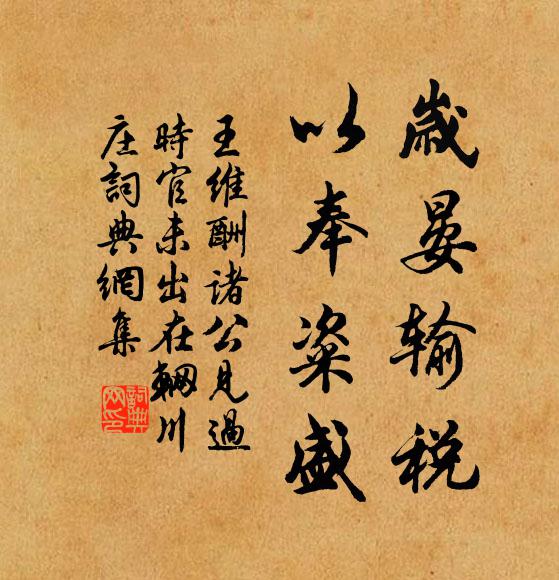 歲晏輸稅
以奉粢盛
王維酬諸公見過
時官未出在輞川
庄詞典網集
詞典网印